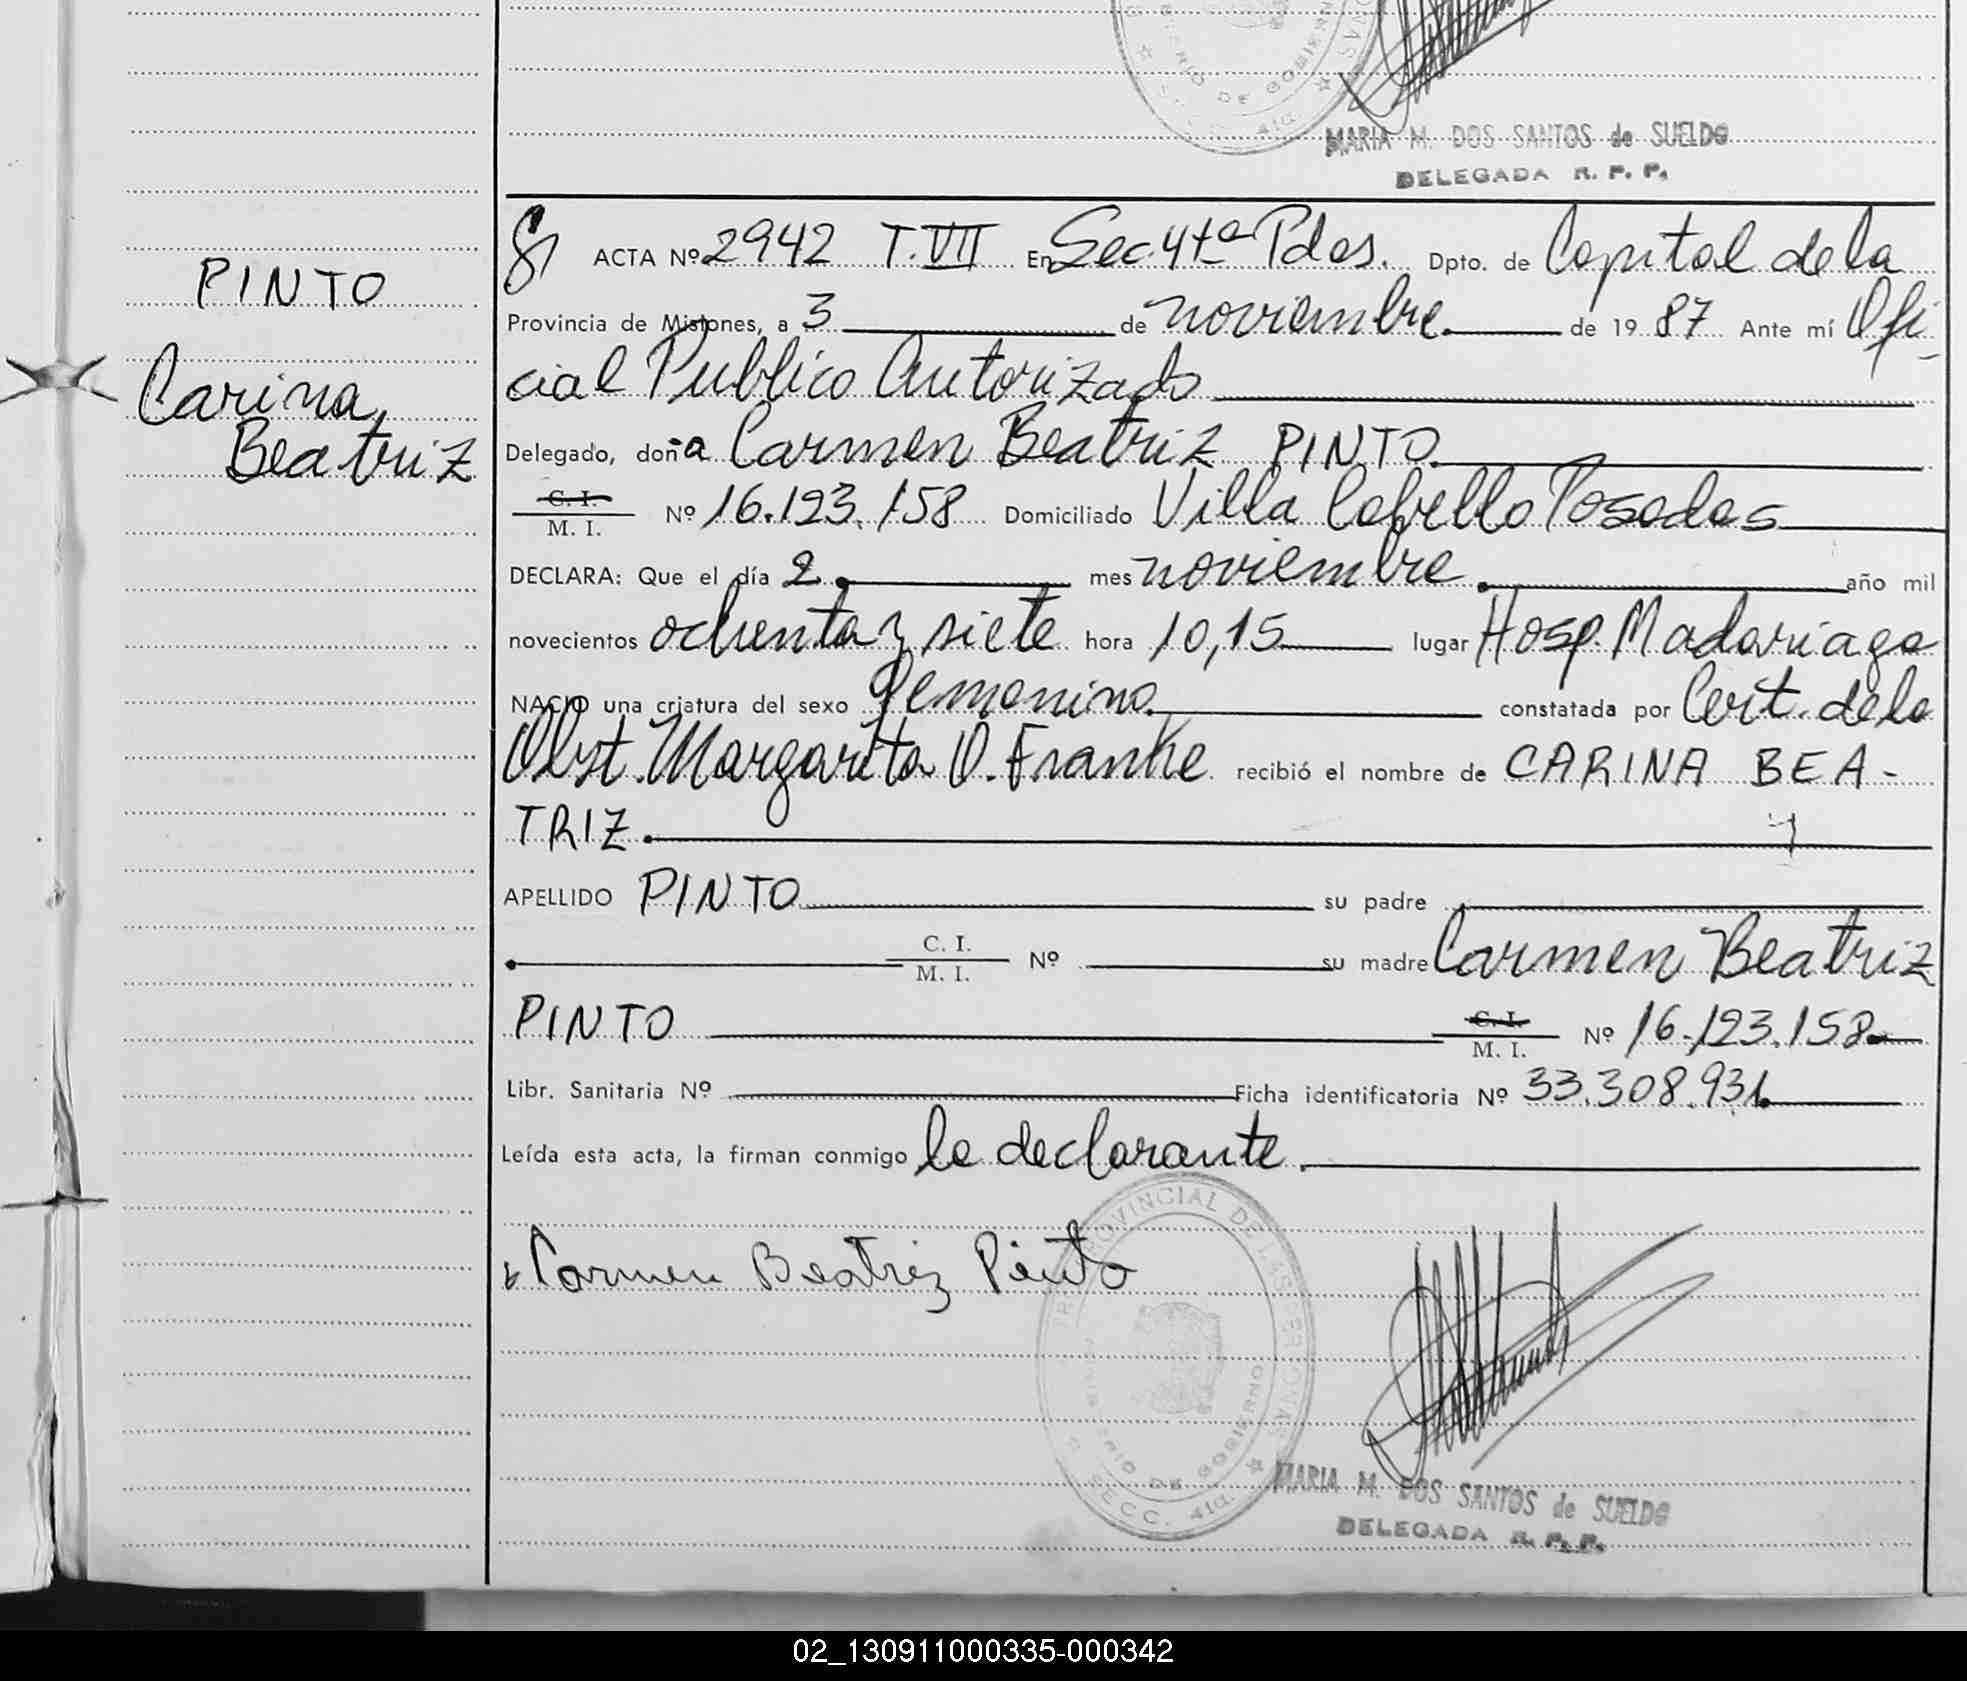 MINISTERIO DE GOBIERNO
MARIA M. DOS SANTOS de SUELDO
DELEGADA R. P. P.
PINTO
Carina
Beatriz
ACTA Nº 2942 T. VII En Sec. 4tª Pdas. Dpto. de Capital de la
Provincia de Misiones, a 3 de noviembre de 19 87 Ante mí Ofi-
cial Publico Autorizado
Delegado, doña Carmen Beatriz PINTO
C. I.
M. I. Nº 16.123.158 Domiciliado Villa Cabello Posadas
DECLARA: Que el día 2 mes noviembre año mil
novecientos ochenta y siete hora 10,15 lugar Hosp. Madariaga
NACIO una criatura del sexo femenino constatada por Cert. de la
Obst. Margarita O. Franke recibió el nombre de CARINA BEA-
TRIZ.
APELLIDO PINTO su padre
C. I.
M. I. Nº su madre Carmen Beatriz
PINTO C. I.
M. I. Nº 16.123.158
Libr. Sanitaria Nº Ficha identificatoria Nº 33.308.931
Leída esta acta, la firman conmigo la declarante.
Carmen Beatriz Pinto
PROVINCIAL DE LAS PERSONAS
MINISTERIO DE GOBIERNO
SECC. 4ta
MARIA M. DOS SANTOS de SUELDO
DELEGADA R. P. P.
02_130911000335-000342